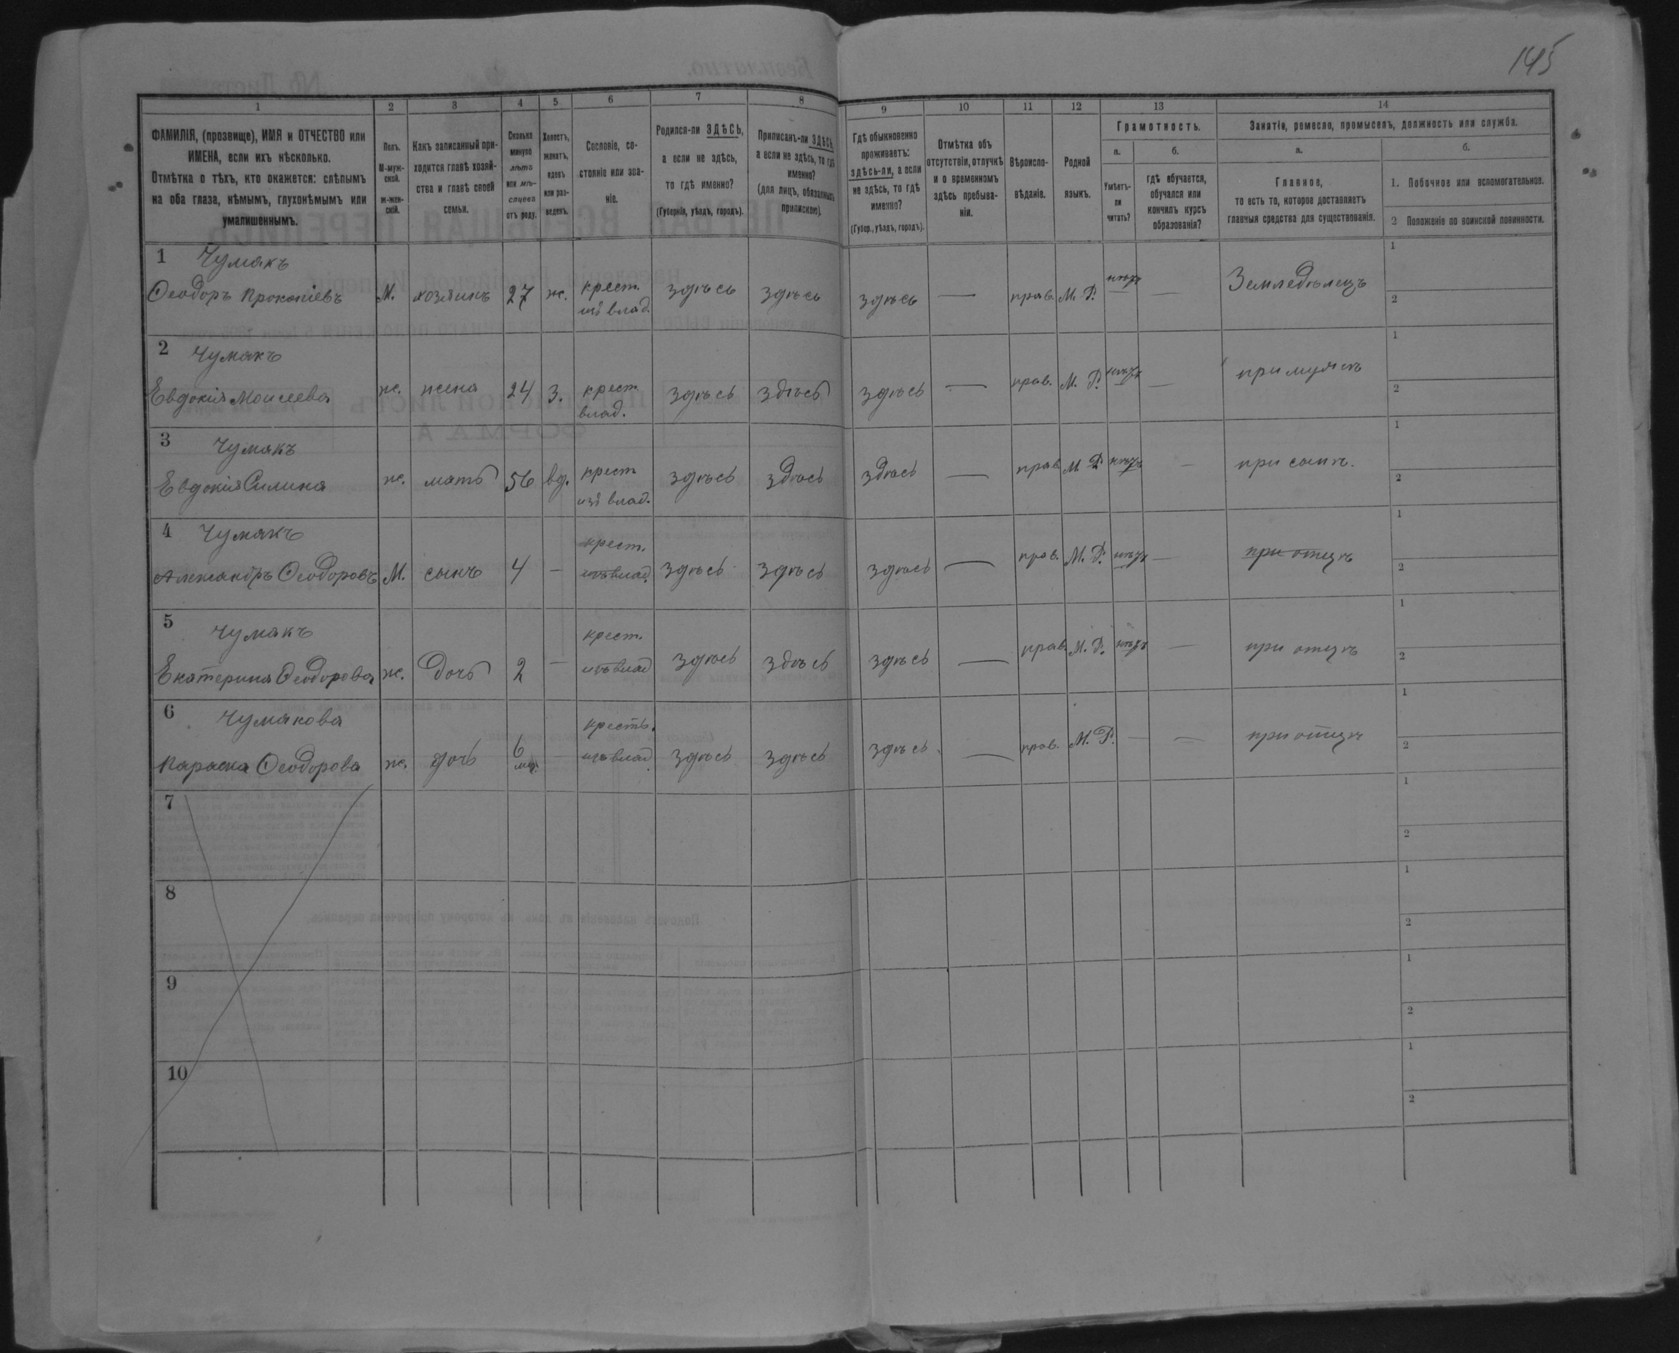 145
1
2
3
4
5
6
7
8
9
10
11
12
13
14
ФАМИЛІЯ, (прозвище), ИМЯ и ОТЧЕСТВО или
ИМЕНА, если ихъ нѣсколько.
Отмѣтка о тѣхъ, кто окажется: слѣпымъ
на оба глаза, нѣмымъ, глухонѣмымъ или
умалишеннымъ.
Полъ.
М-муж-
ской.
ж-жен-
скій.
Какъ записанный при-
ходится главѣ хозяй-
ства и главѣ своей
семьи.
Сколько
минуло
лѣтъ
или мѣ-
сяцевъ
отъ роду.
Холостъ,
женатъ,
вдовъ
или раз-
веденъ.
Сословіе, со-
стояніе или зва-
ніе.
Родился-ли ЗДѢСЬ,
а если не здѣсь,
то гдѣ именно?
(Губернія, уѣздъ, городъ).
Приписанъ-ли ЗДѢСЬ,
а если не здѣсь, то гдѣ
именно?
(для лицъ, обязанныхъ
припискою).
Гдѣ обыкновенно
проживаетъ:
здѣсь-ли, а если
не здѣсь, то гдѣ
именно?
(Губер., уѣздъ, городъ).
Отмѣтка объ
отсутствіи, отлучкѣ
и о временномъ
здѣсь пребыва-
ніи.
Вѣроиспо-
вѣданіе.
Родной
языкъ.
Грамотность.
а.
Умѣетъ-
ли
читать?
б.
гдѣ обучается,
обучался или
кончилъ курсъ
образованія?
Занятіе, ремесло, промыселъ, должность или служба.
а.
Главное,
то есть то, которое доставляетъ
главныя средства для существованія.
б.
1. Побочное или вспомогательное.
2 Положеніе по воинской повинности.
1 Чумакъ
Ѳеодоръ Прокопіевъ М. хозяинъ 27 ж. крест. изъ влад. здѣсь здѣсь здѣсь — прав. М. Р. нѣтъ — Земледѣлецъ
1
2
2 Чумакъ
Евдокія Моисеева ж. жена 24 З. крест. влад. здѣсь здѣсь здѣсь — прав. М. Р. нѣтъ — при мужѣ
1
2
3 Чумакъ
Евдокія Силина ж. мать 56 вд. крест. изъ влад. здѣсь здѣсь здѣсь — прав М. Р. нѣтъ — при сынѣ.
1
2
4 Чумакъ
Александръ Ѳеодоровъ М. сынъ 4 — крест. изъ влад. здѣсь здѣсь здѣсь — прав. М. Р. нѣтъ — при отцѣ
1
2
5 Чумакъ
Екатерина Ѳеодорова ж. дочь 2 — крест. изъ влад здѣсь здѣсь здѣсь — прав М. Р. нѣтъ — при отцѣ
1
2
6 Чумакова
Параска Ѳеодорова ж. дочь 6 мѣс. — крестъ. изъ влад. здѣсь здѣсь здѣсь. — прав. М. Р. — — при отцѣ
1
2
7
1
2
8
1
2
9
1
2
10
1
2